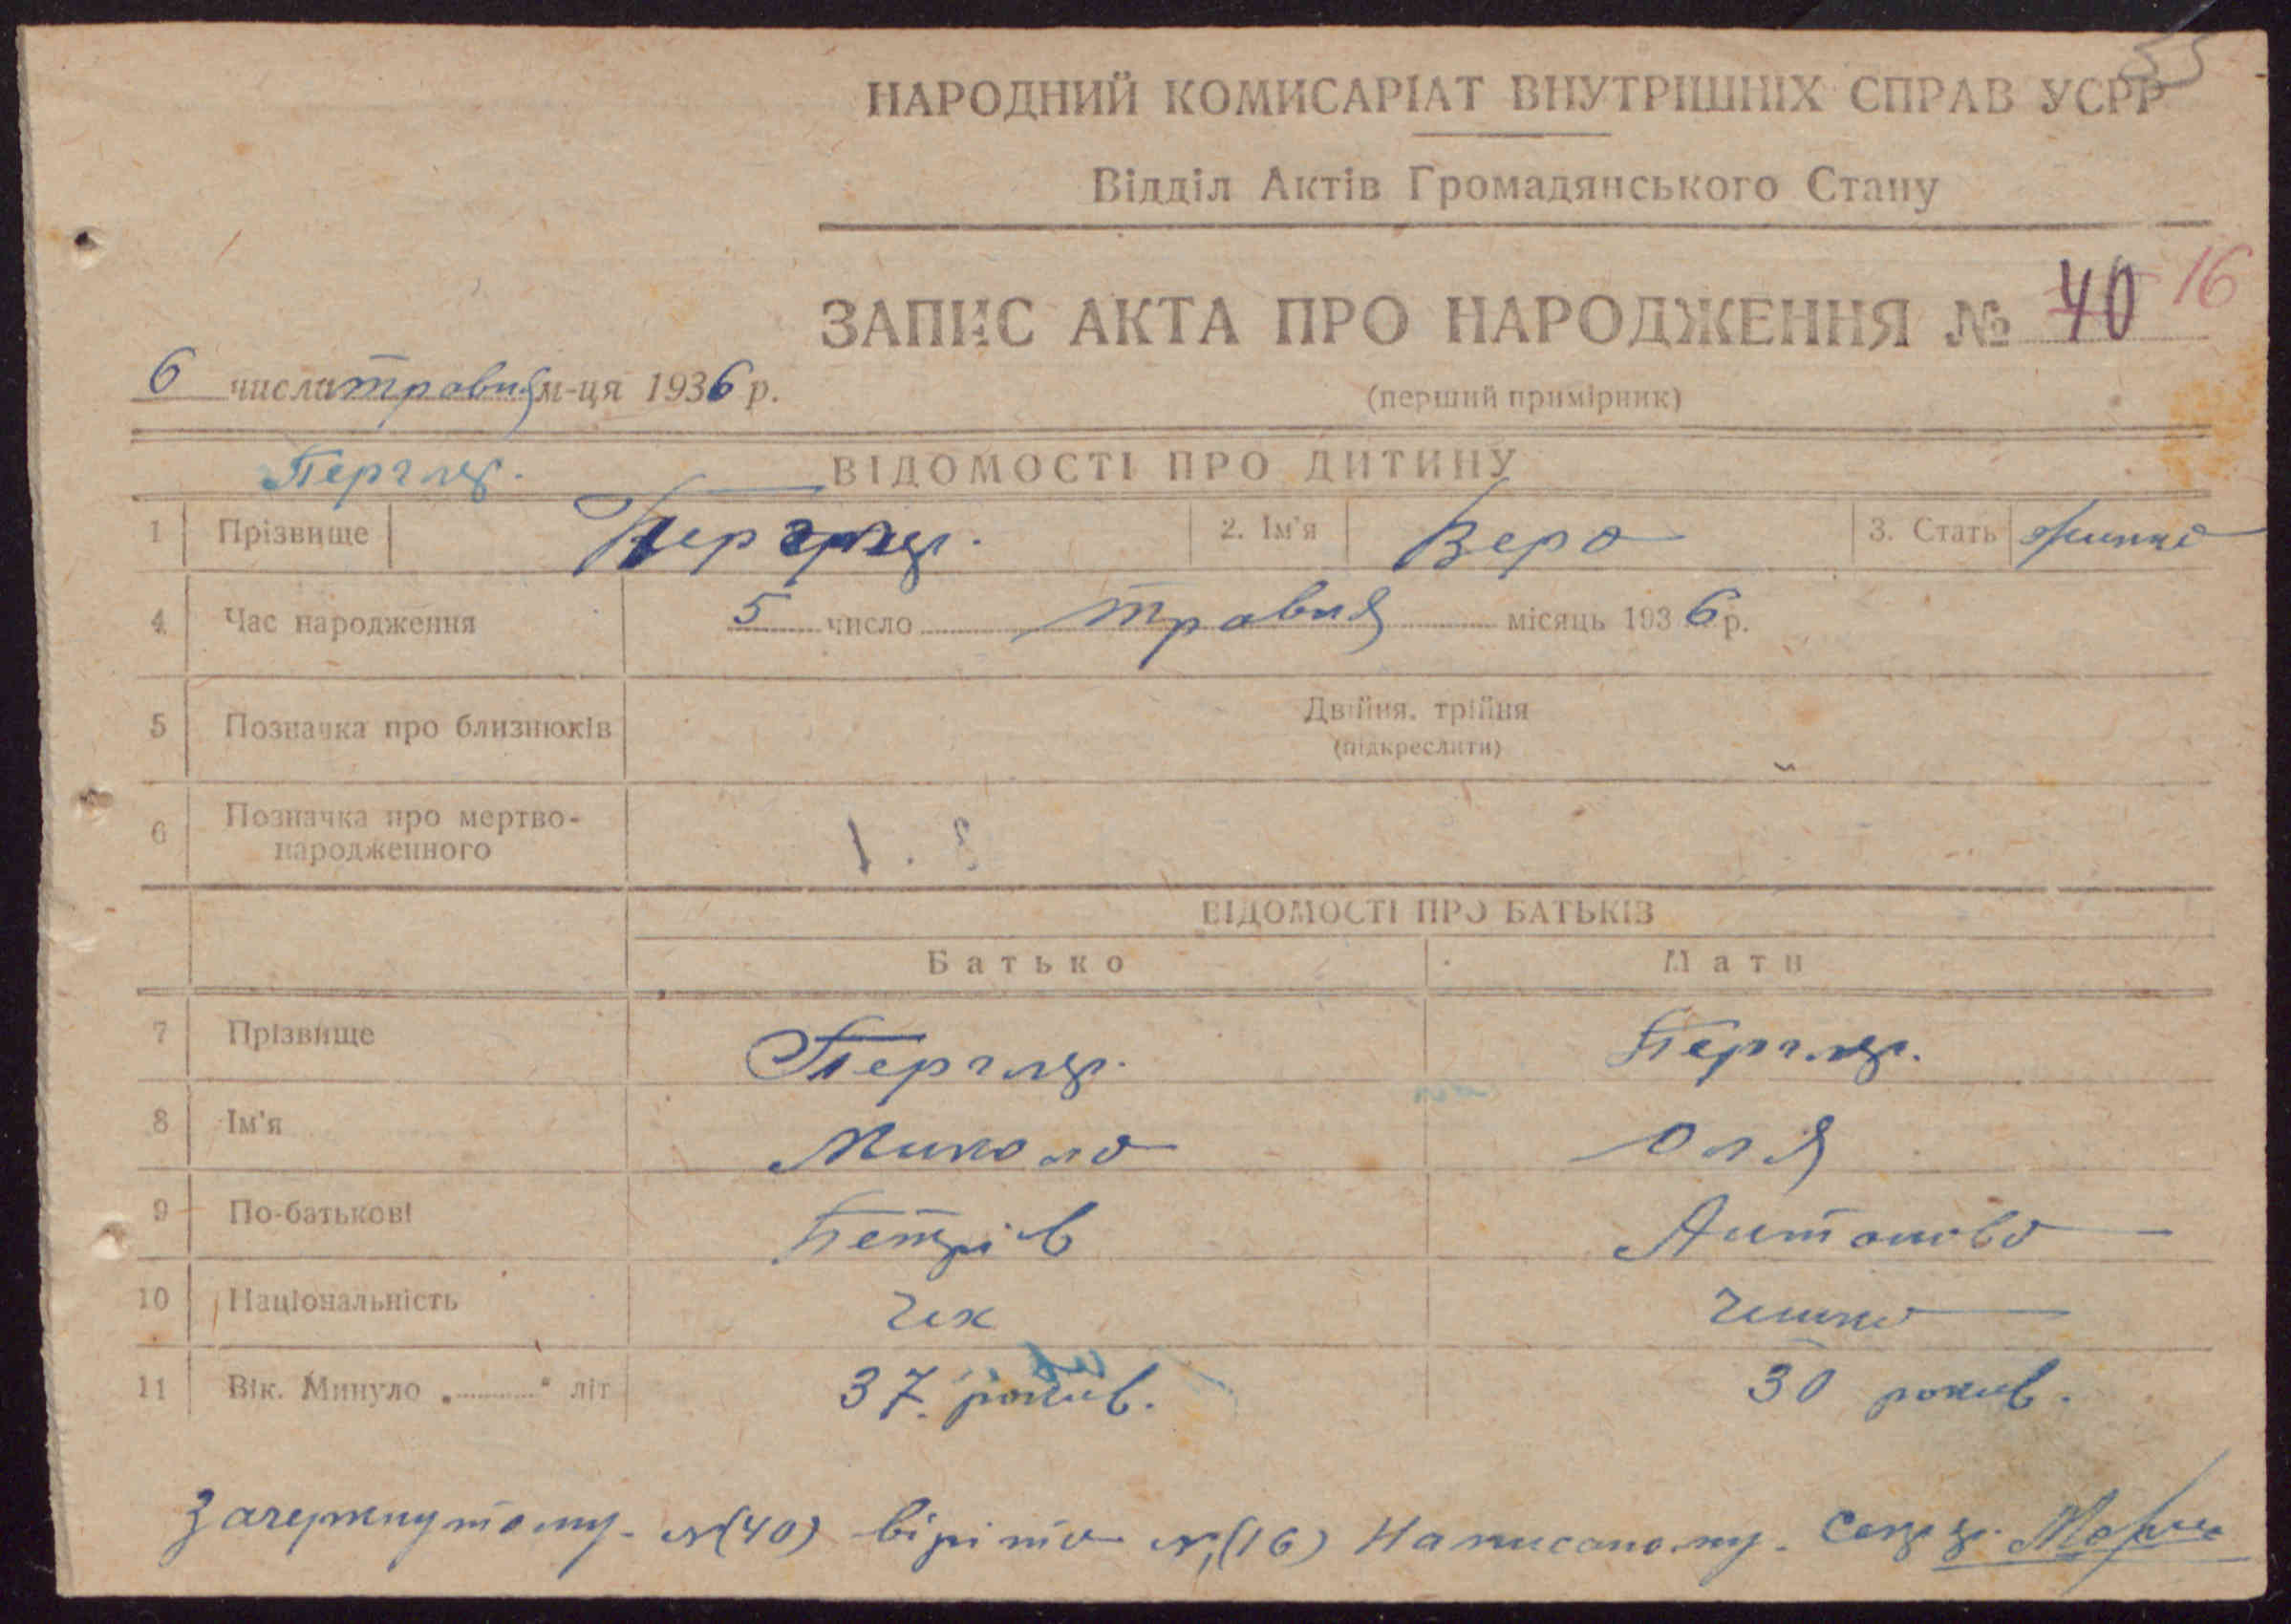 55
НАРОДНИЙ КОМИСАРІАТ ВНУТРІШНІХ СПРАВ УСРР
Відділ Актів Громадянського Стану
ЗАПИС АКТА ПРО НАРОДЖЕННЯ № 40 16
6 числа травня м-ця 1936 р.
(перший примірник)
Пергляр.
ВІДОМОСТІ ПРО ДИТИНУ
1 Прізвище 2. Ім'я Вера 3. Стать жинка
4 Час народження 5 число травня місяць 1936 р.
5 Позначка про близнюків Двійня, трійня
(підкреслити)
6 Позначка про мертво-
народженного
ВІДОМОСТІ ПРО БАТЬКІВ
Батько Мати
7 Прізвище Пергляр. Пергляр.
8 Ім'я Микола Оля
9 По-батькові Петрів Антонова
10 Національність Чех Чешка
11 Вік. Минуло „ " літ 37. рокив. 30 рокив.
Зачеркнутому. №(40) віріти №(16) Написаному.